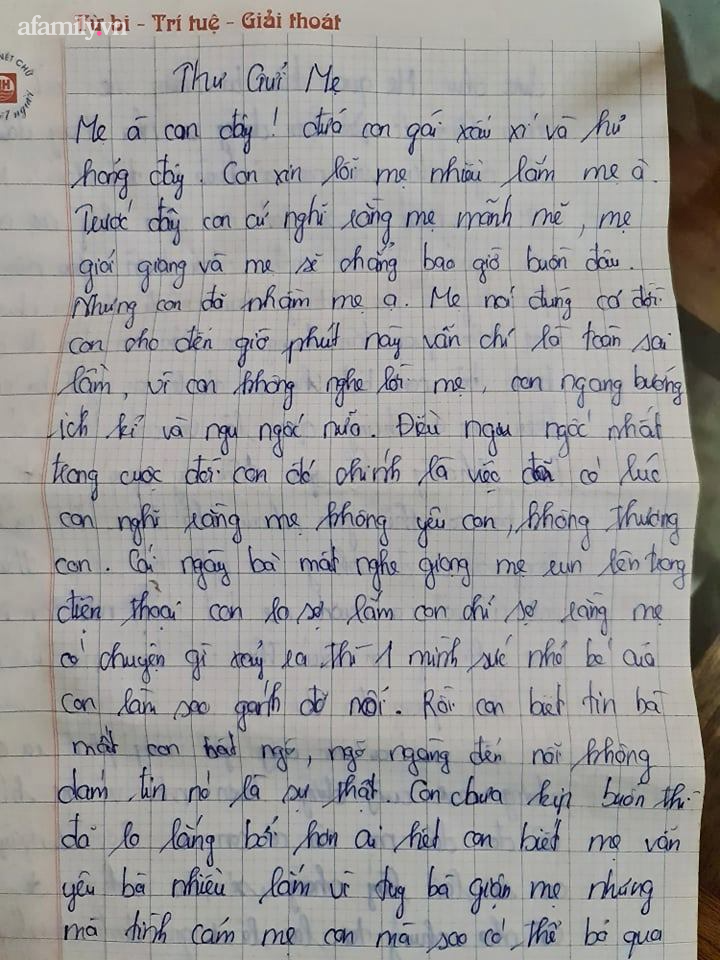 afamily.vn
Từ bi - Trí tuệ - Giải thoát
NÉT CHỮ
NGƯỜI
Thư Gửi Mẹ
Mẹ à con đây! đứa con gái xấu xí và hư
hỏng đây. Con xin lỗi mẹ nhiều lắm mẹ à.
Trước đây con cứ nghĩ rằng mẹ mạnh mẽ, mẹ
giỏi giang và mẹ sẽ chẳng bao giờ buồn đâu.
Nhưng con đã nhầm mẹ ạ. Mẹ nói đúng cả đời
con cho đến giờ phút này vẫn chỉ là toàn sai
lầm, vì con không nghe lời mẹ, con ngang bướng
ích kỉ và ngu ngốc nữa. Điều ngu ngốc nhất
trong cuộc đời con đó chính là việc đã có lúc
con nghĩ rằng mẹ không yêu con, không thương
con. Cái ngày bà mất nghe giọng mẹ run lên trong
điện thoại con lo sợ lắm con chỉ sợ rằng mẹ
có chuyện gì xảy ra thì 1 mình sức nhỏ bé của
con làm sao gánh đỡ nổi. Rồi con biết tin bà
mất con bất ngờ, ngỡ ngàng đến nỗi không
dám tin nó là sự thật. Con chưa kịp buồn thì
đã lo lắng bởi hơn ai hết con biết mẹ vẫn
yêu bà nhiều lắm vì dug bà giận mẹ nhưng
mà tình cảm mẹ con mà sao có thể bỏ qua